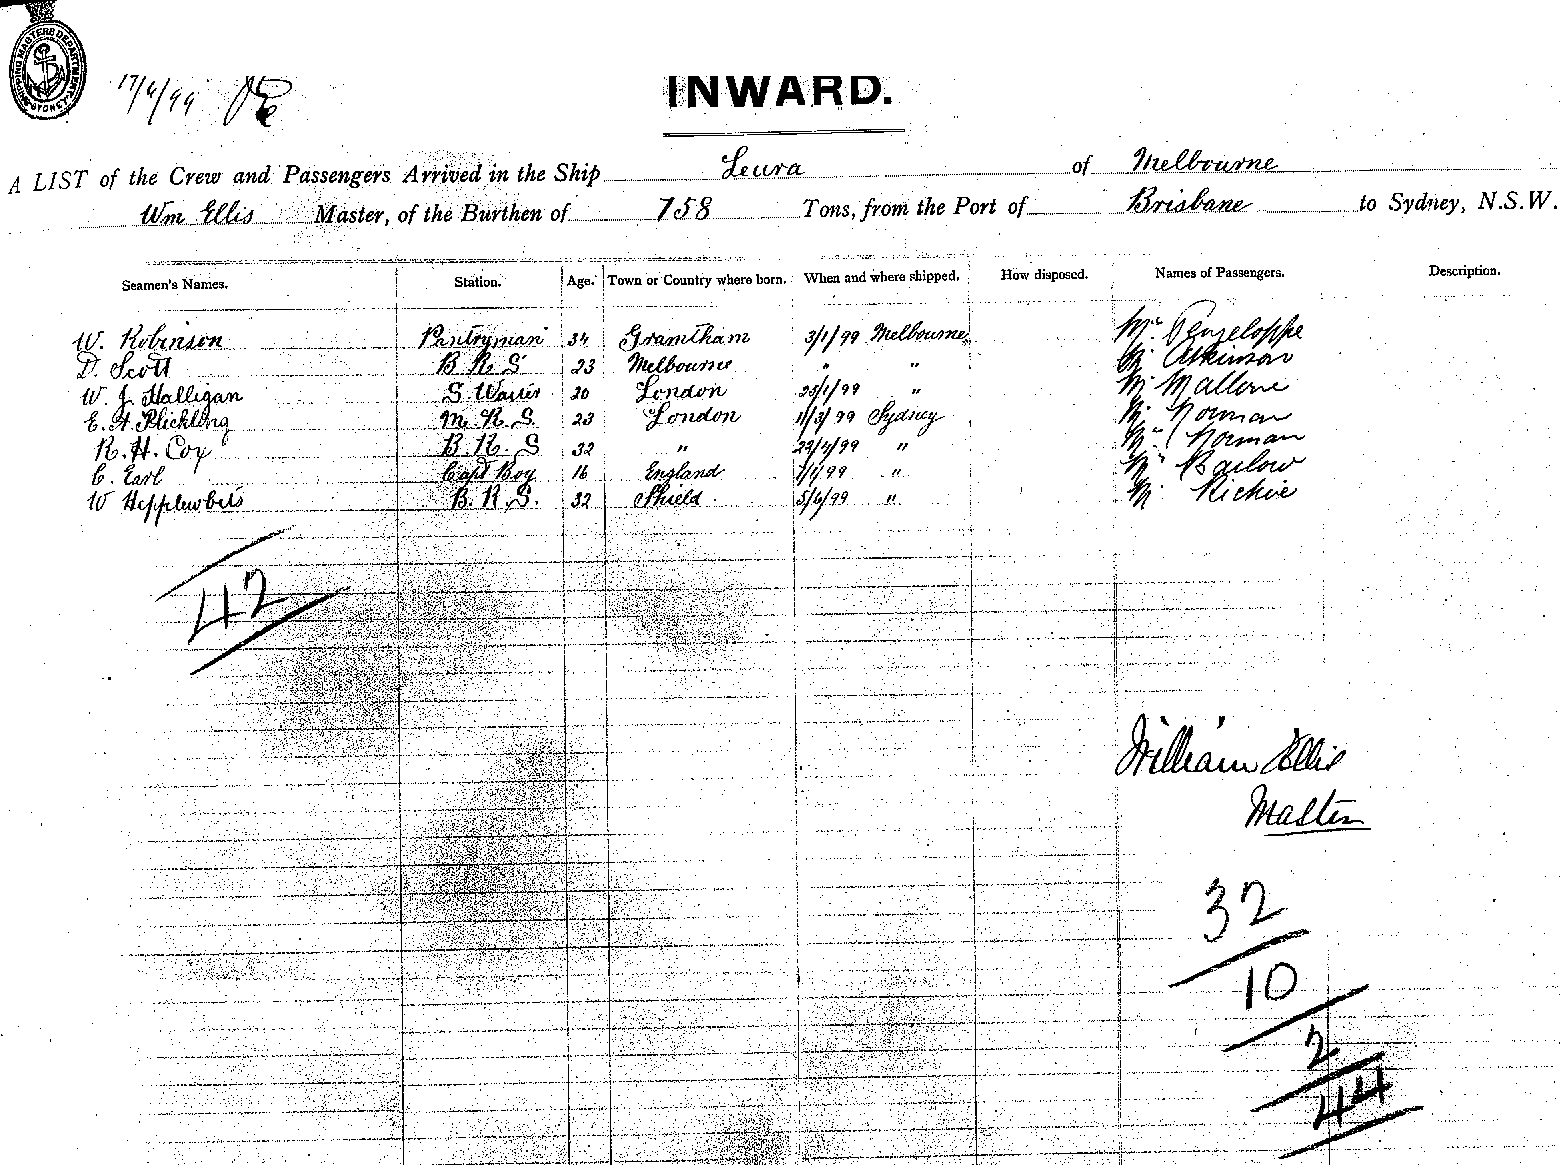 SHIPPING MASTERS DEPARTMENT SYDNEY
17/6/99
INWARD.
A LIST of the Crew and Passengers Arrived in the Ship Leura of Melbourne
Wm Ellis Master, of the Burthen of 758 Tons, from the Port of Brisbane to Sydney, N.S.W.
Seamen's Names. Station. Age. Town or Country where born. When and where shipped. How disposed. Names of Passengers. Description.
W. Robinson Pantryman 34 Gramtham 3/1/99 Melbourne Penzeloppe
D. Scott B R S 23 Melbourne " " Mr Atkinson
W. J. Halligan S. Waiter 20 London 25/1/99 " Mr Mallow
E. A. M. R. S. 23 London 11/3/99 Sydney Mr Norman
R. H. Cox B. R. S 32 " 22/4/99 " Norman
C. Earl Capt Boy 16 England " Barlow
W Hepplewbits B. R. S. 32 Shield 5/6/99 " Mr Richie
42
William Ellis
Master
32
10
2
44